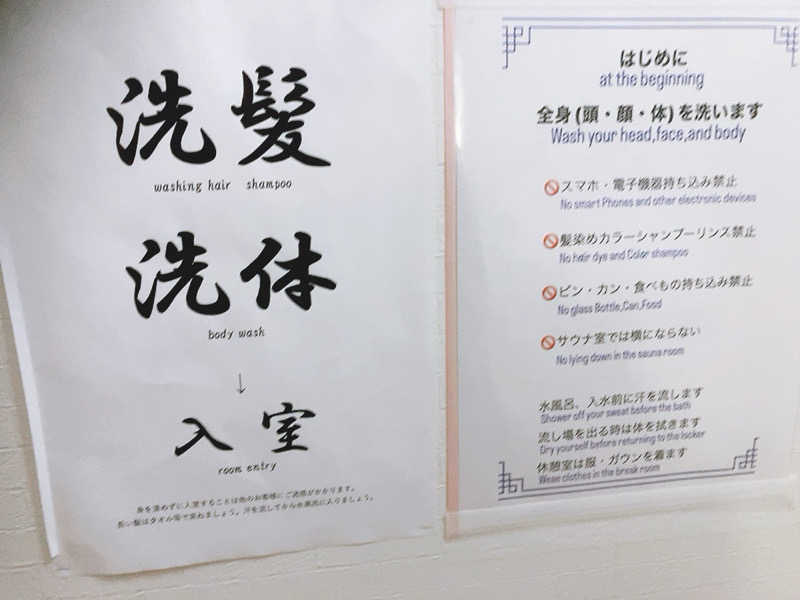 洗髪
washing hair shampoo
洗体
body wash
↓
入室
room entry
身を清めずに入室することは他のお客様にご迷惑がかかります。
長い髪はタオル等で束ねましょう。汗を流してから水風呂に入りましょう。
はじめに
at the beginning
全身(頭・顔・体)を洗います
Wash your head,face,and body
スマホ・電子機器持ち込み禁止
No smart Phones and other electronic devices
髪染めカラーシャンプーリンス禁止
No hair dye and Color shampoo
ビン・カン・食べもの持ち込み禁止
No glass Bottle,Can,Food
サウナ室では横にならない
No lying down in the sauna room
水風呂、入水前に汗を流します
Shower off your sweat before the bath
流し場を出る時は体を拭きます
Dry yourself before returning to the locker
休憩室は服・ガウンを着ます
Wear clothes in the break room